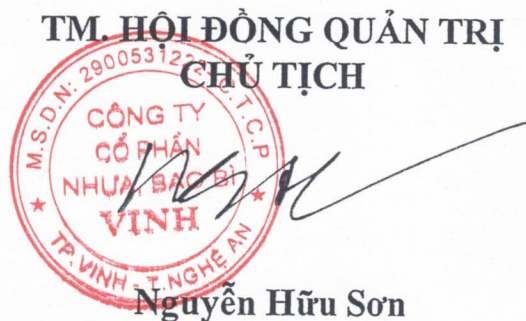 TM. HỘI ĐỒNG QUẢN TRỊ
CHỦ TỊCH
M.S.D.N: 2900531222 C.T.C.P
CÔNG TY
CỔ PHẦN
NHỰA, BAO BÌ
VINH
TP. VINH - T. NGHỆ AN
Nguyễn Hữu Sơn